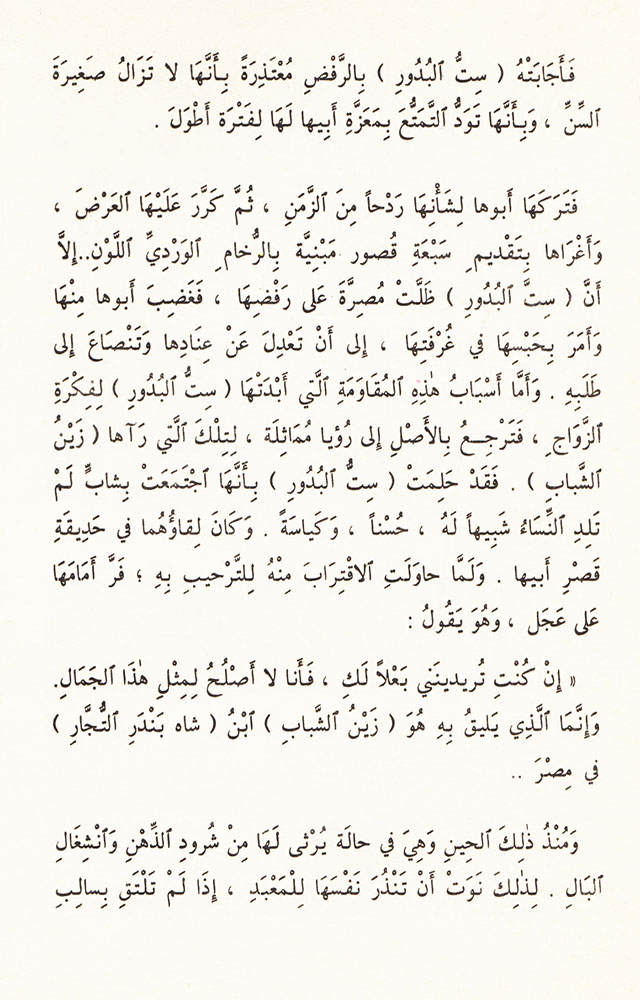 فَأَجَابَتْهُ ( سِتُّ ٱلبُدُورِ ) بِالرَّفْضِ مُعْتَذِرَةً بِأَنَّهَا لا تَزَالُ صَغِيرَةَ
ٱلسِّنِّ ، وَبِأَنَّهَا تَوَدُّ ٱلتَّمَتُّعَ بِمَعَزَّةِ أَبِيها لَهَا لِفَتْرَة أَطْوَلَ .
فَتَرَكَهَا أَبوها لِشَأْنِهَا رَدْحاً مِنَ ٱلزَّمَنِ ، ثُمَّ كَرَّرَ عَلَيْهَا ٱلعَرْضَ ،
وَأَغْرَاها بِتَقْديمِ سَبْعَةِ قُصور مَبْنِيَّة بِالرُّخامِ ٱلوَرْدِيِّ ٱللَّوْنِ..إِلاَّ
أَنَّ ( سِتَّ ٱلبُدُورِ ) ظَلَّتْ مُصِرَّةً عَلى رَفْضِهَا ، فَغَضِبَ أَبوها مِنْهَا
وَأَمَرَ بِحَبْسِهَا في غُرْفَتِهَا ، إِلى أَنْ تَعْدِلَ عَنْ عِنَادِها وَتَنْصَاعَ إِلى
طَلَبِهِ . وَأَمَّا أَسْبَابُ هٰذِهِ ٱلمُقَاوَمَةِ ٱلَّتي أَبْدَتْهَا ( سِتُّ ٱلبُدُورِ ) لِفِكْرَةِ
ٱلزَّوَاجِ ، فَتَرْجِعُ بِالأَصْلِ إِلى رُؤيا مُمَاثِلَة ، لِتِلْكَ ٱلَّتي رَآها ( زَيْنُ
ٱلشَّبابِ ) . فَقَدْ حَلِمَتْ ( سِتُّ ٱلبُدُورِ ) بِأَنَّهَا ٱجْتَمَعَتْ بِشابٍّ لَمْ
تَلِدِ ٱلنِّسَاءُ شَبِيهاً لَهُ ، حُسْناً ، وَكَياسَةً . وَكَانَ لِقاؤُهُما في حَدِيقَةِ
قَصْرِ أَبيها . وَلَمَّا حاوَلَتِ ٱلاقْتِرَابَ مِنْهُ لِلتَّرْحيبِ بِهِ ؛ فَرَّ أَمَامَهَا
عَلى عَجَل ، وَهُوَ يَقُولُ :
« إِنْ كُنْتِ تُريدينَني بَعْلاً لَكِ ، فَأَنا لا أَصْلُحُ لِمِثْلِ هٰذَا ٱلجَمَالِ.
وَإِنَّمَا ٱلَّذِي يَليقُ بِهِ هُوَ ( زَيْنُ ٱلشَّبابِ ) ٱبْنُ ( شاه بَنْدَرِ ٱلتُّجَّارِ )
في مِصْرَ ..
وَمُنْذُ ذٰلِكَ ٱلحِينِ وَهِيَ في حالَة يُرْثى لَهَا مِنْ شُرودِ ٱلذِّهْنِ وَٱنْشِغَالِ
ٱلبَالِ . لِذٰلِكَ نَوَتْ أَنْ تَنْذُرَ نَفْسَهَا لِلْمَعْبَدِ ، إِذَا لَمْ تَلْتَقِ بِسالِبِ